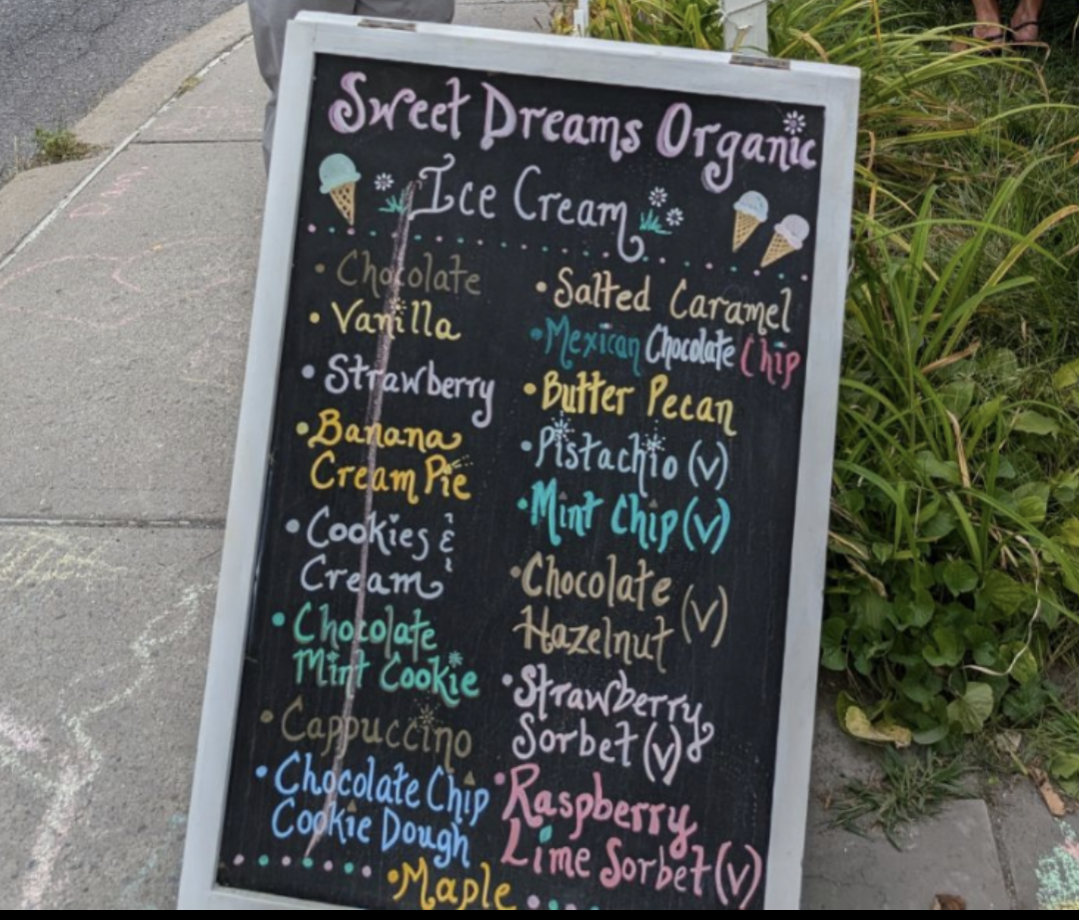 Sweet Dreams Organic
Ice Cream
• Chocolate
• Vanilla
• Strawberry
• Banana
Cream Pie
• Cookies &
Cream
• Chocolate
Mint Cookie
• Cappuccino
• Chocolate Chip
Cookie Dough
• Maple
• Salted Caramel
• Mexican Chocolate Chip
• Butter Pecan
• Pistachio (v)
• Mint Chip (v)
• Chocolate
Hazelnut (v)
• Strawberry
Sorbet (v)
• Raspberry
Lime Sorbet (v)